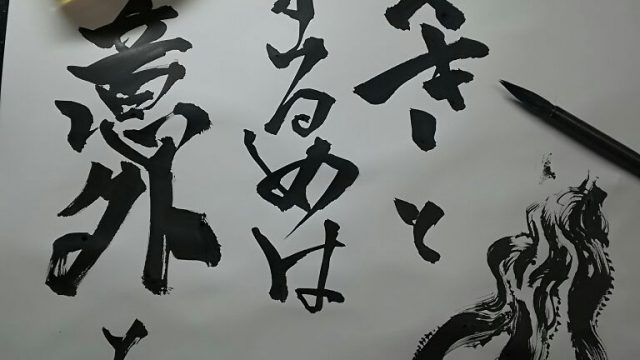 きと
するめは
意外と